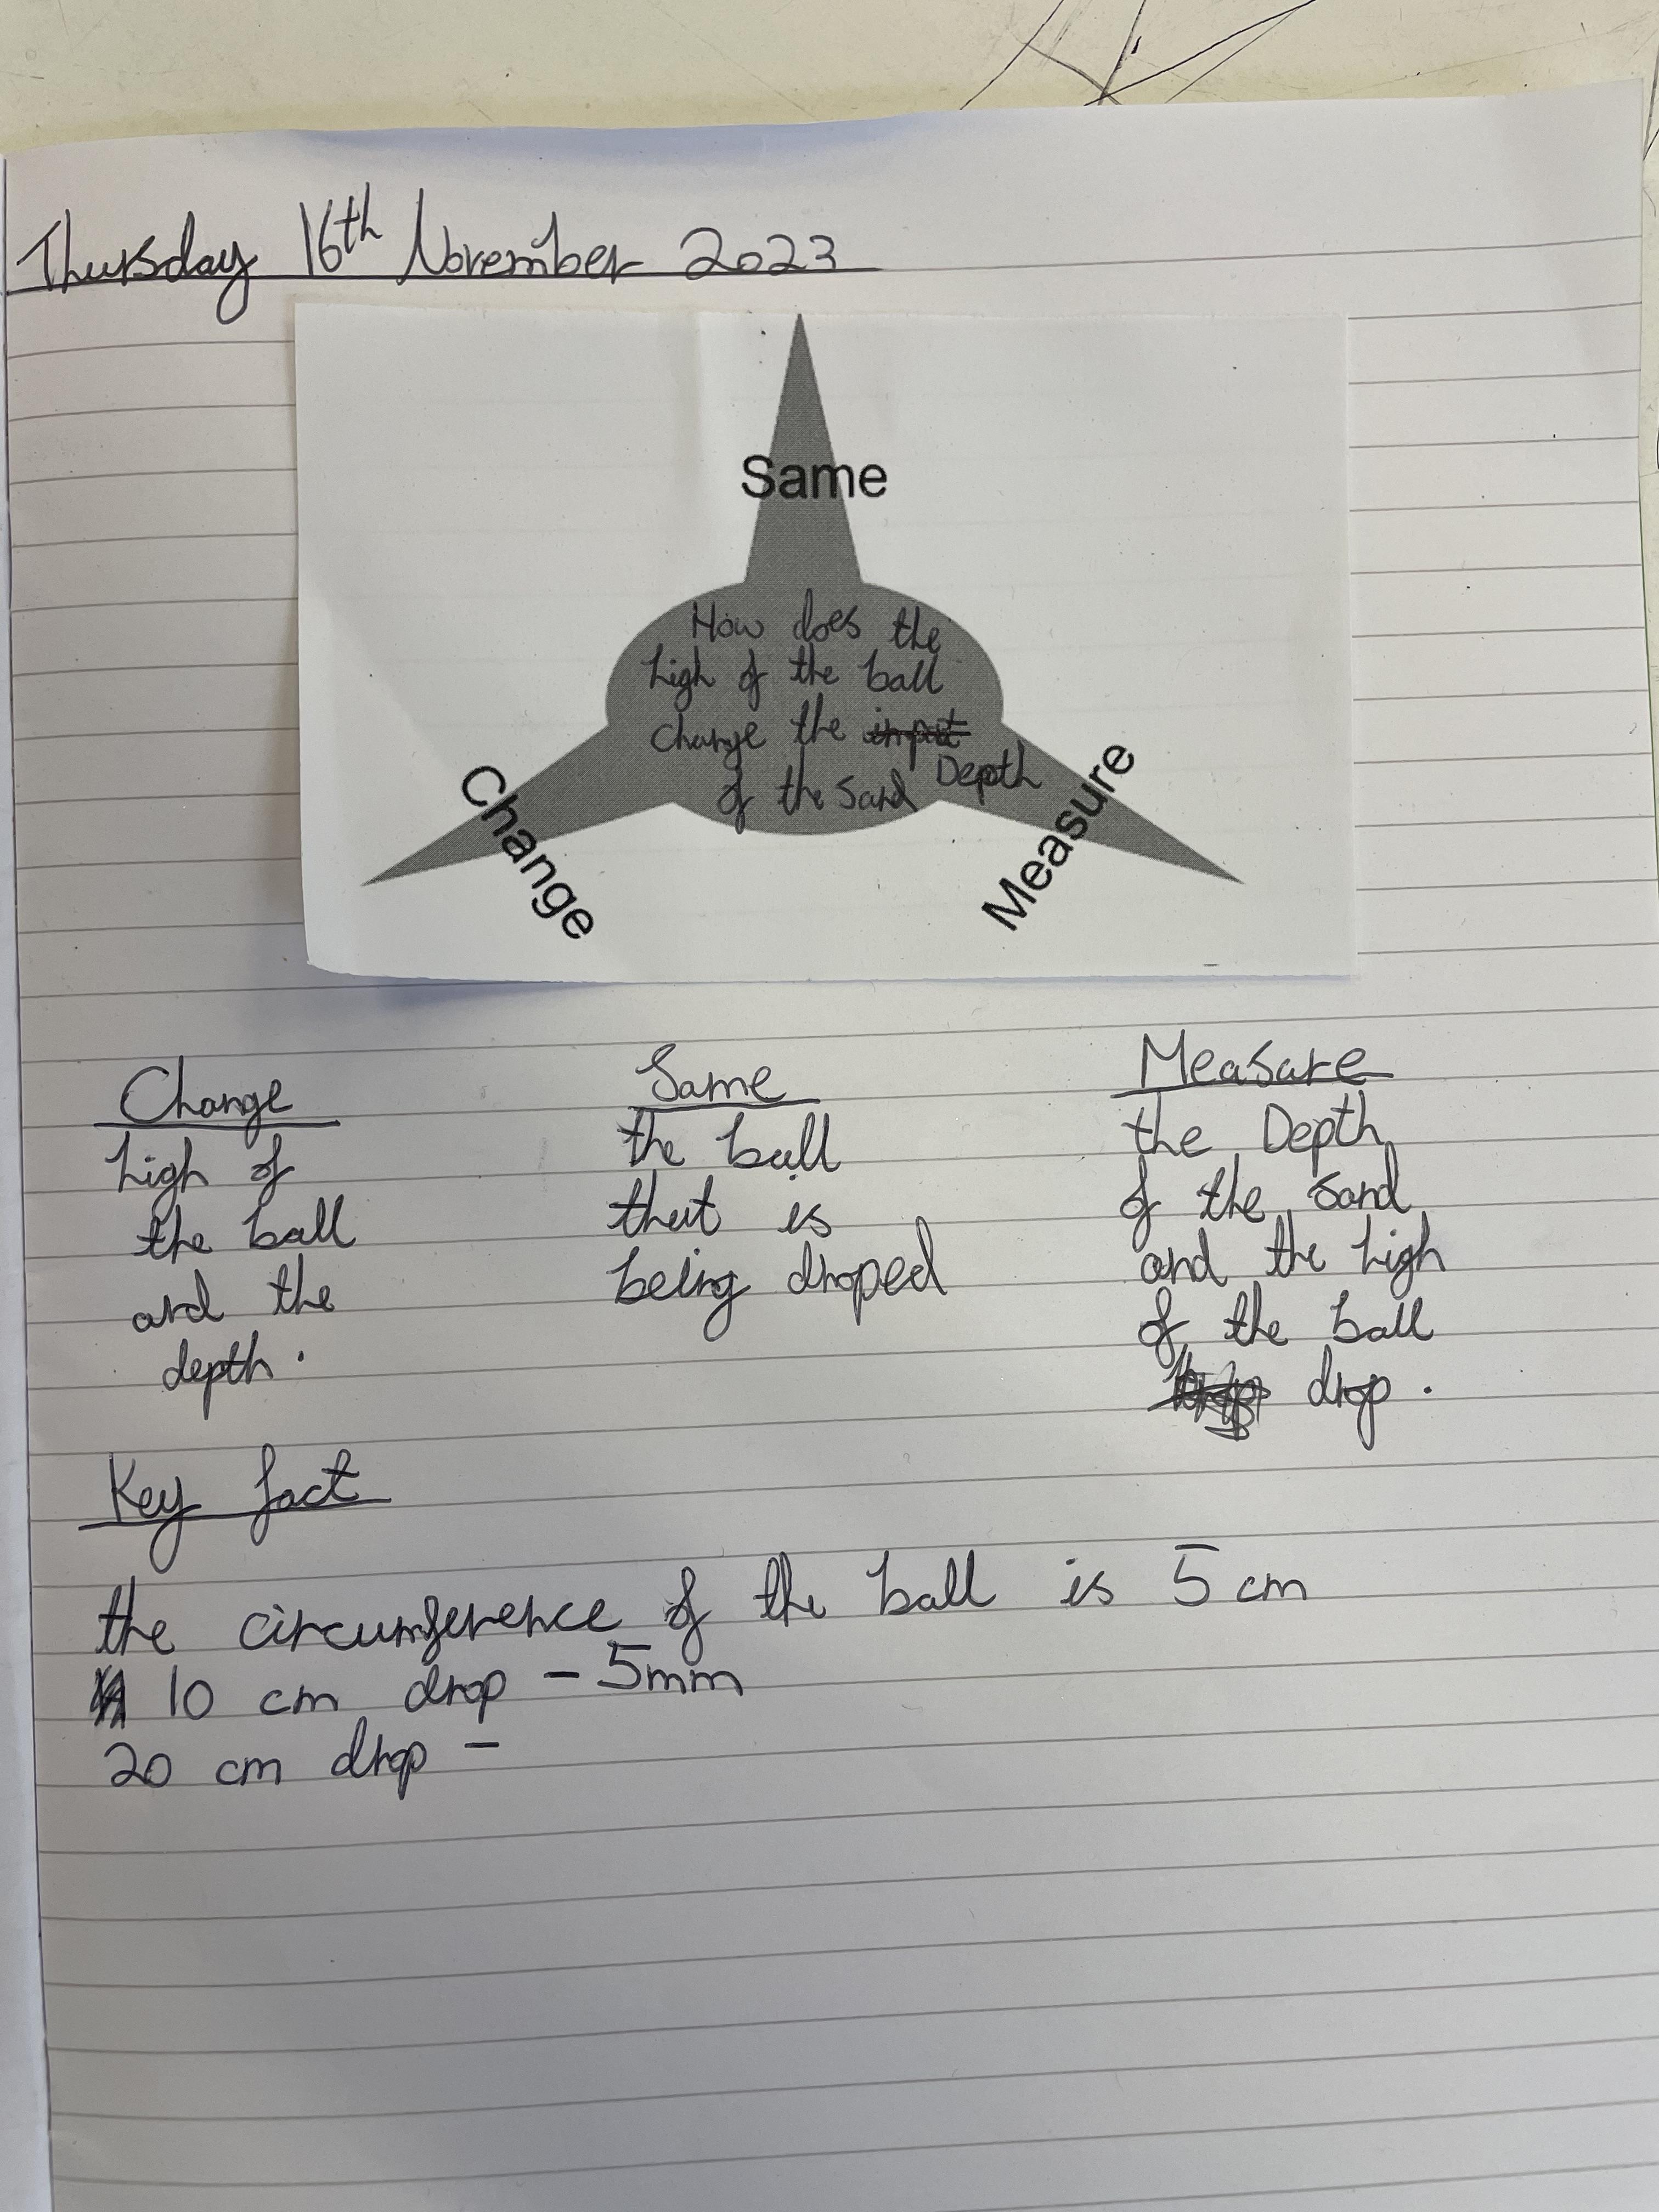 Thursday 16th November 2023
Same
How does the
high of the ball
change the
Depth
of the sand
Change
Measure
Change
high of
the ball
and the
depth.
Same
the ball
that is
being droped
Measure
the Depth
of the sand
and the high
of the ball
drop.
Key fact
the circumference of the ball is 5 cm
10 cm drop - 5mm
20 cm drop -